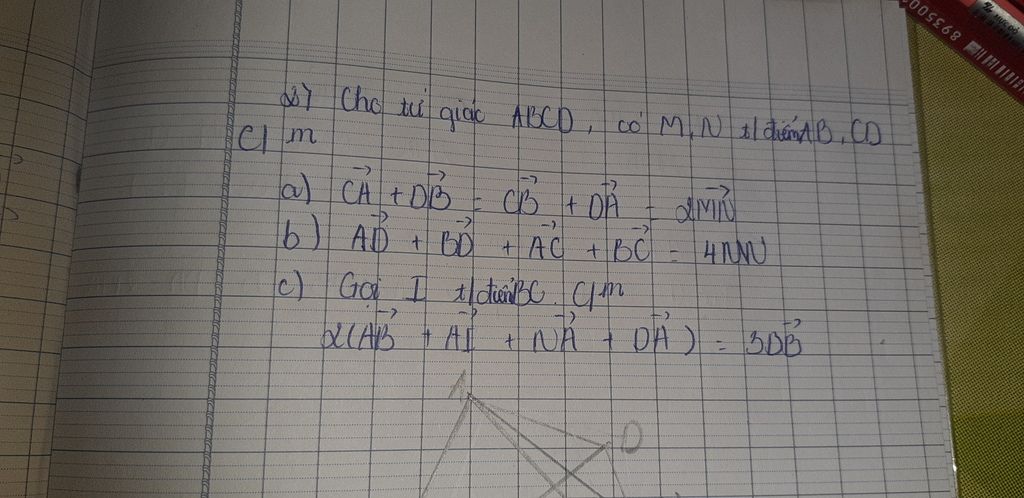 8935001
28) Cho tứ giác ABCD, có M,N t/điểm AB, CD
C/m
a) CA + DB = CB + DA = 2MN
b) AD + BD + AC + BC = 4MN
c) Gọi I t/điểm BC. C/m
2(AB + AI + NA + DA) = 3DB
A
D